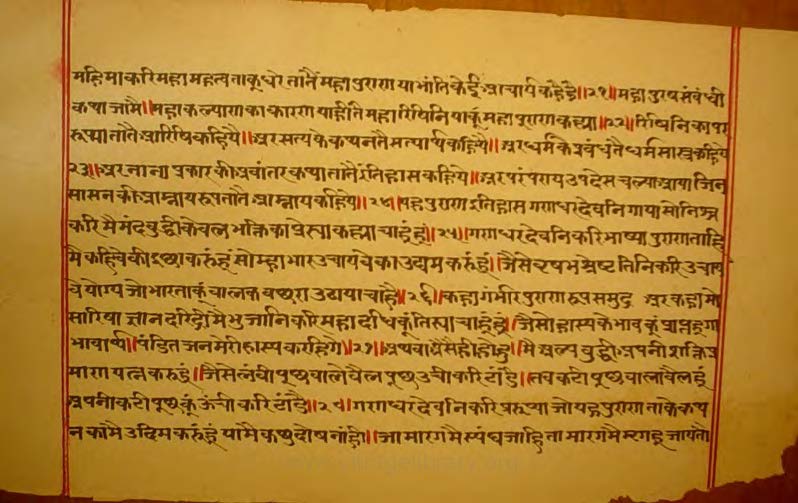 महिमाकरि महा महत्वताकूं धरे तातैं महापुराण या भांति केई आचार्य कहै है॥२१॥ महा पुरष संबंधी
कथा जामै॥ महा कल्याण का कारण याहीतै महा रिषिनि याकूं महापुराण कह्या॥२२॥ रिषिनिका प्र
रूप्या तातै आरिषि कहिये॥ अर सत्य के कथनतै सत्यार्थ कहिये॥ अर धर्म के प्रबंधतै धर्मसास्त्र कहिये
२३॥ अर नाना प्रकार की अवांतर कथा तातै इतिहास कहिये॥ अर परंपराय उपदेस चल्या आया जिन
सासन की आम्नाय रूप तातै आम्नाय कहिये॥२४॥ यह पुराण इतिहास गणधर देवनि गाया सो निश्च
करि मै मंद बुद्धी केवल भक्ति का प्रेर्‍या कह्या चाहूं हूं॥२५॥ गणधर देवनिकरि भाष्या पुराण ताहि
मै कहिवे की इच्छा करूं हूं सो महा भार उचायवे का उद्यम करूं हूं॥ जैसे वृषभ श्रेष्ट तिनिकरि उचाय
वे योग्य जो भार ताकूं बालक बछरा उठाया चाहै॥२६॥ कहा गंभीर पुराण रूप समुद्र अर कहा मो
सारिषा ज्ञान दरिद्री मै भुजानिकरि महादधिकूं तिर्‍या चाहूं हूं॥ जैसो हास्य के भावकूं प्राप्त हूंगा
भावार्थ॥ पंडित जन मेरी हास्य करहिंगे॥२७॥ अथवा ऐसैही होहु॥ मै अल्प बुद्धी अपनी शक्ति प्र
माण यत्न करूं हूं॥ जैसै लंबी पूछ वाले बैल पूछ उंची करि ठाडै॥ तब कटी पूछ वाला बैल हूं
अपनी कटी पूछकूं ऊंची करि ठाडै॥२८॥ गणधर देवनिकरि प्ररूप्या जो यह पुराण ताके कथ
न का मै उदिम करूं हूं यामै कछु दोष नांही॥ जा मारगमै स्यंघ जाहि ता मारगमै म्रग हू जाय तो